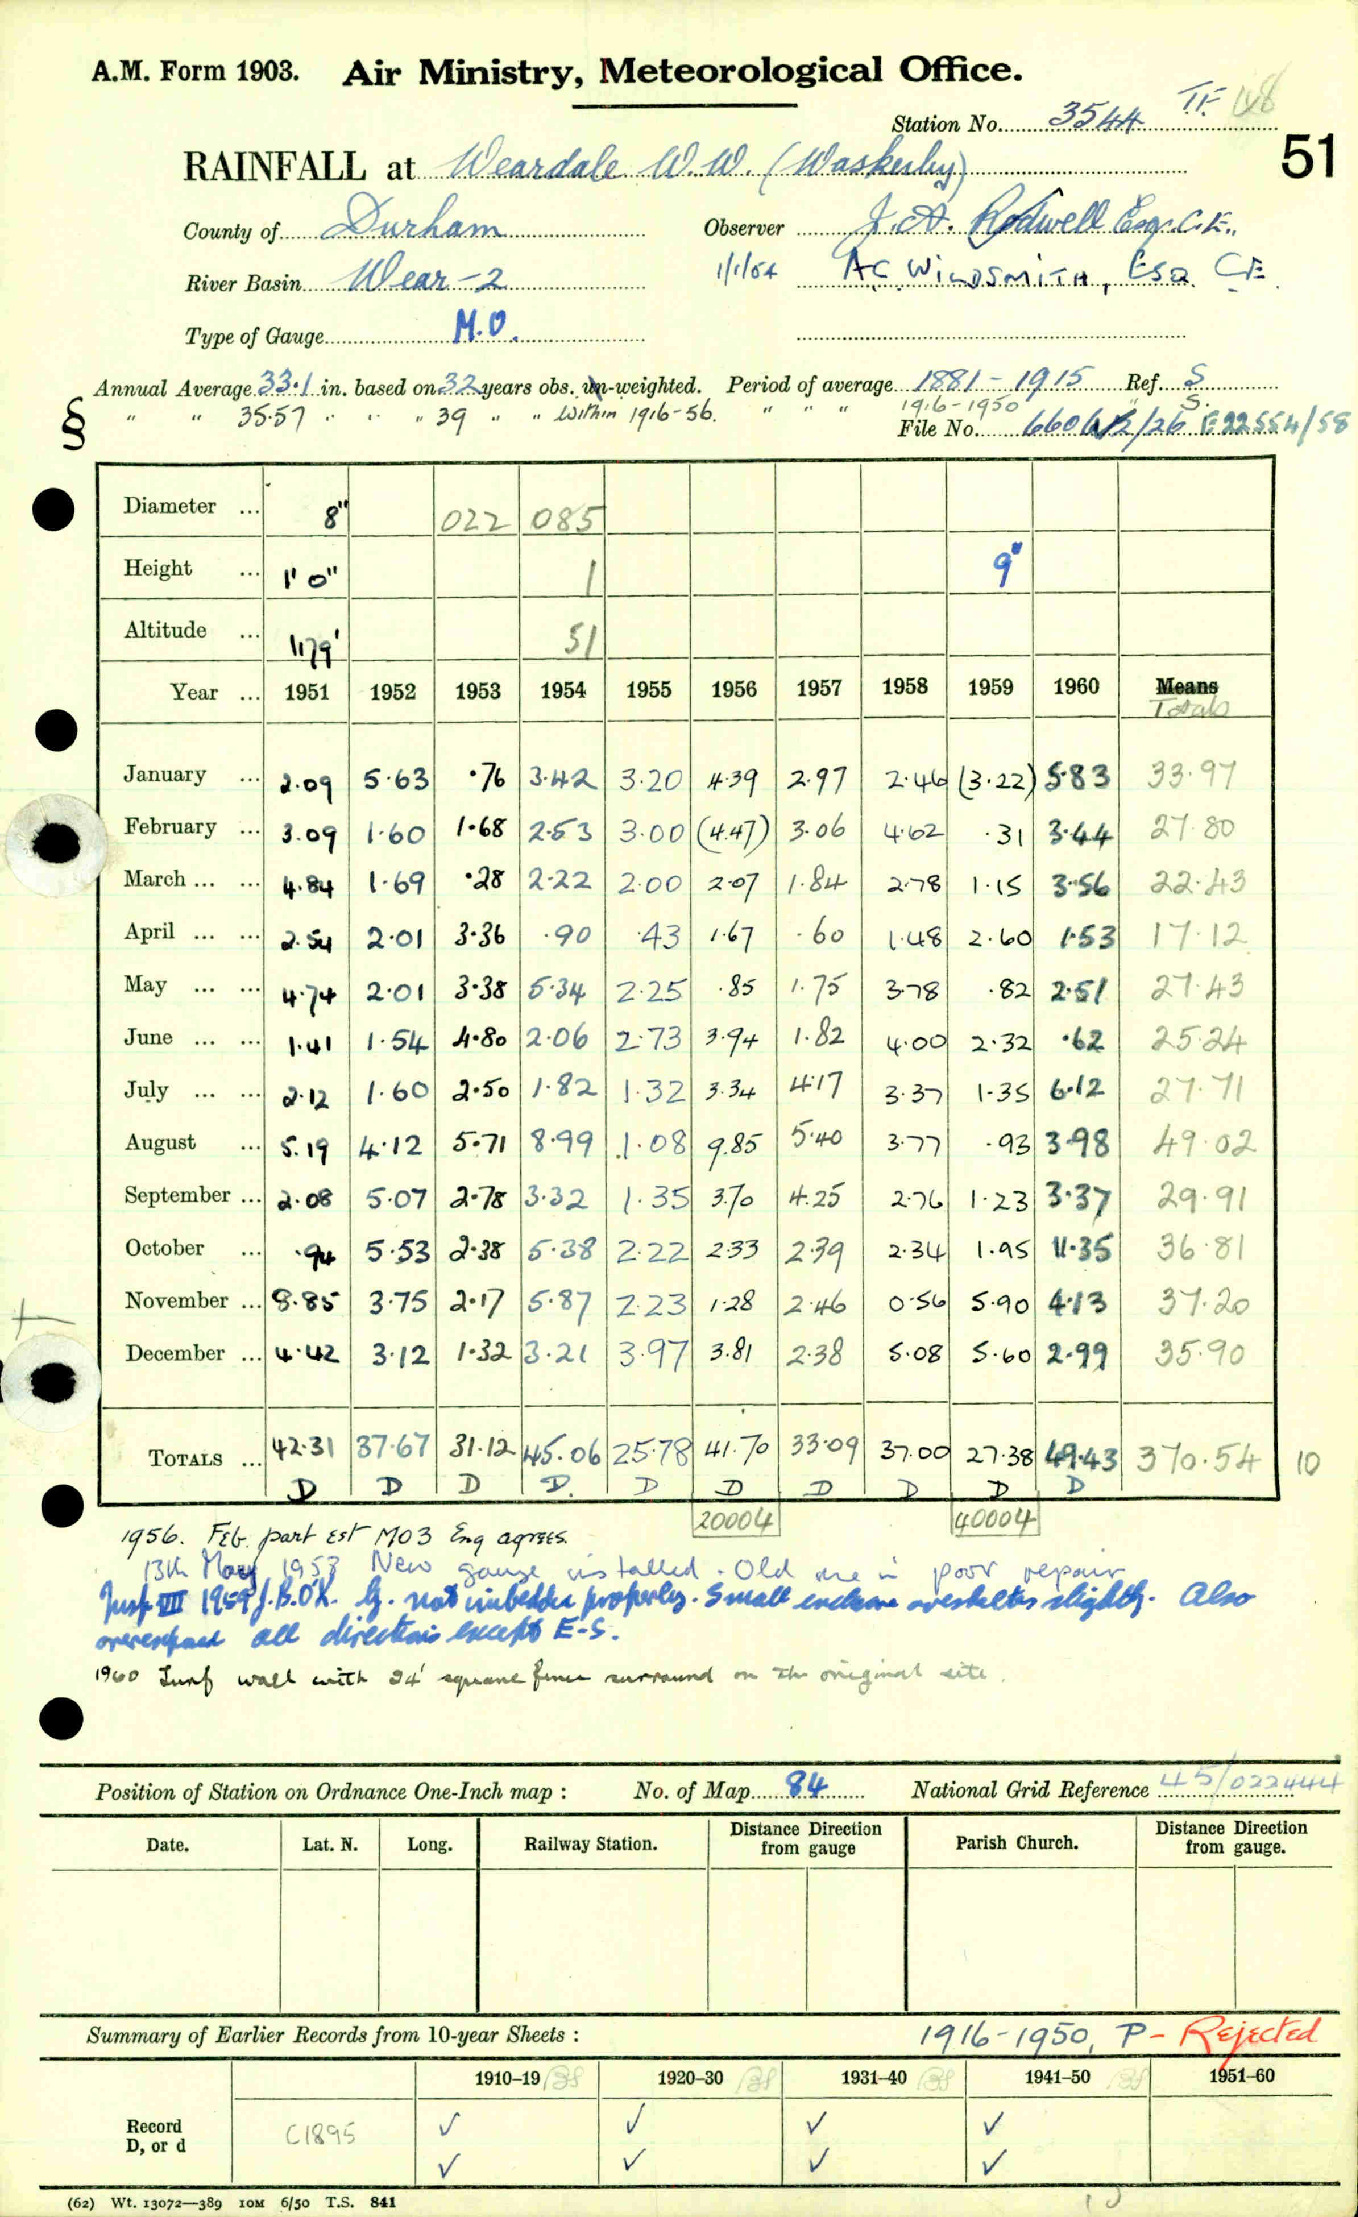 A.M. Form 1903. Air Ministry, Meteorological Office.
Station No. 3544 T.F. 148
51
RAINFALL at Weardale W.W. (Waskerley)
County of Durham Observer J. A. Rodwell Esq. C.E.
River Basin Wear-2 1/1/54 A.C. WILDSMITH, ESQ. C.E.
Type of Gauge M.O.
Annual Average 33.1 in. based on 32 years obs. un-weighted. Period of average 1881-1915 Ref. S
§ " " 35.57 " " " 39 " " Within 1916-56. " " " 1916-1950 S.
File No. E22554/58
Diameter ... 8" 022 085
Height ... 1' 0" 1 9"
Altitude ... 1179' 51
Year ... 1951 1952 1953 1954 1955 1956 1957 1958 1959 1960 Means Totals
January ... 2.09 5.63 .76 3.42 3.20 4.39 2.97 2.46 (3.22) 5.83 33.97
February ... 3.09 1.60 1.68 2.53 3.00 (4.47) 3.06 4.62 .31 3.44 27.80
March ... ... 4.84 1.69 .28 2.22 2.00 2.07 1.84 2.78 1.15 3.56 22.43
April ... ... 2.54 2.01 3.36 .90 .43 1.67 .60 1.48 2.60 1.53 17.12
May ... ... 4.74 2.01 3.38 5.34 2.25 .85 1.75 3.78 .82 2.51 27.43
June ... ... 1.41 1.54 4.80 2.06 2.73 3.94 1.82 4.00 2.32 .62 25.24
July ... ... 2.12 1.60 2.50 1.82 1.32 3.34 4.17 3.37 1.35 6.12 27.71
August ... 5.19 4.12 5.71 8.99 1.08 9.85 5.40 3.77 .93 3.98 49.02
September ... 2.08 5.07 2.78 3.32 1.35 3.70 4.25 2.76 1.23 3.37 29.91
October ... .94 5.53 2.38 5.38 2.22 2.33 2.39 2.34 1.95 11.35 36.81
November ... 8.85 3.75 2.17 5.87 2.23 1.28 2.46 0.56 5.90 4.13 37.20
December ... 4.42 3.12 1.32 3.21 3.97 3.81 2.38 5.08 5.60 2.99 35.90
TOTALS ... 42.31 37.67 31.12 45.06 25.78 41.70 33.09 37.00 27.38 49.43 370.54 10
D D D D. D D D D D D
20004 40004
1956. Feb. part est MO3 Eng agrees.
13th May 1958 New gauge installed. Old one in poor repair
Insp VIII 1959 J.B.O'K. G. not imbedded properly. Small enclosure overshelters slightly. Also
overexposed all directions except E-S.
1960 Turf wall with 24' square fence surround on the original site.
Position of Station on Ordnance One-Inch map : No. of Map 84 National Grid Reference 45/022444
Date. Lat. N. Long. Railway Station. Distance Direction from gauge Parish Church. Distance Direction from gauge.
Summary of Earlier Records from 10-year Sheets : 1916-1950, P - Rejected
1910-19 1920-30 1931-40 1941-50 1951-60
Record D, or d C1895 ✓ ✓ ✓ ✓
✓ ✓ ✓ ✓
(62) Wt. 13072—389 10M 6/50 T.S. 841